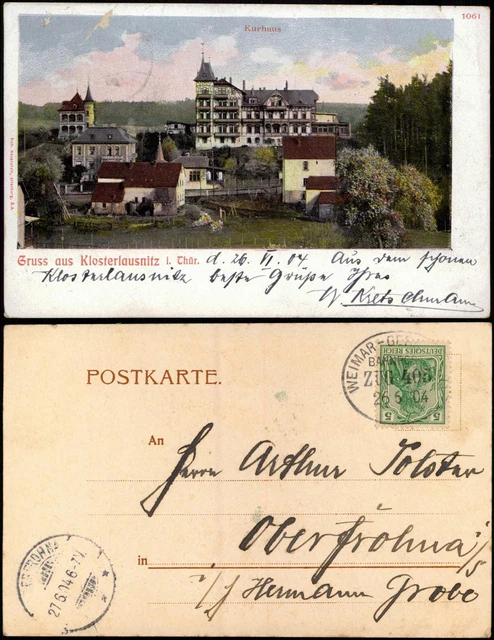 1061
Kurhaus
Gruss aus Klosterlausnitz i. Thür. d. 26. VI. 04 Aus dem schönen
Klosterlausnitz beste Grüße Ihres
W. Kretschmann
POSTKARTE.
WEIMAR-GE
ZUG 405
26 6 04
DEUTSCHES REICH
5 5
An Herrn Arthur Polster
Oberfrohna i/S
in
i/f Hermann Grobe
27.6.04 6-7V.